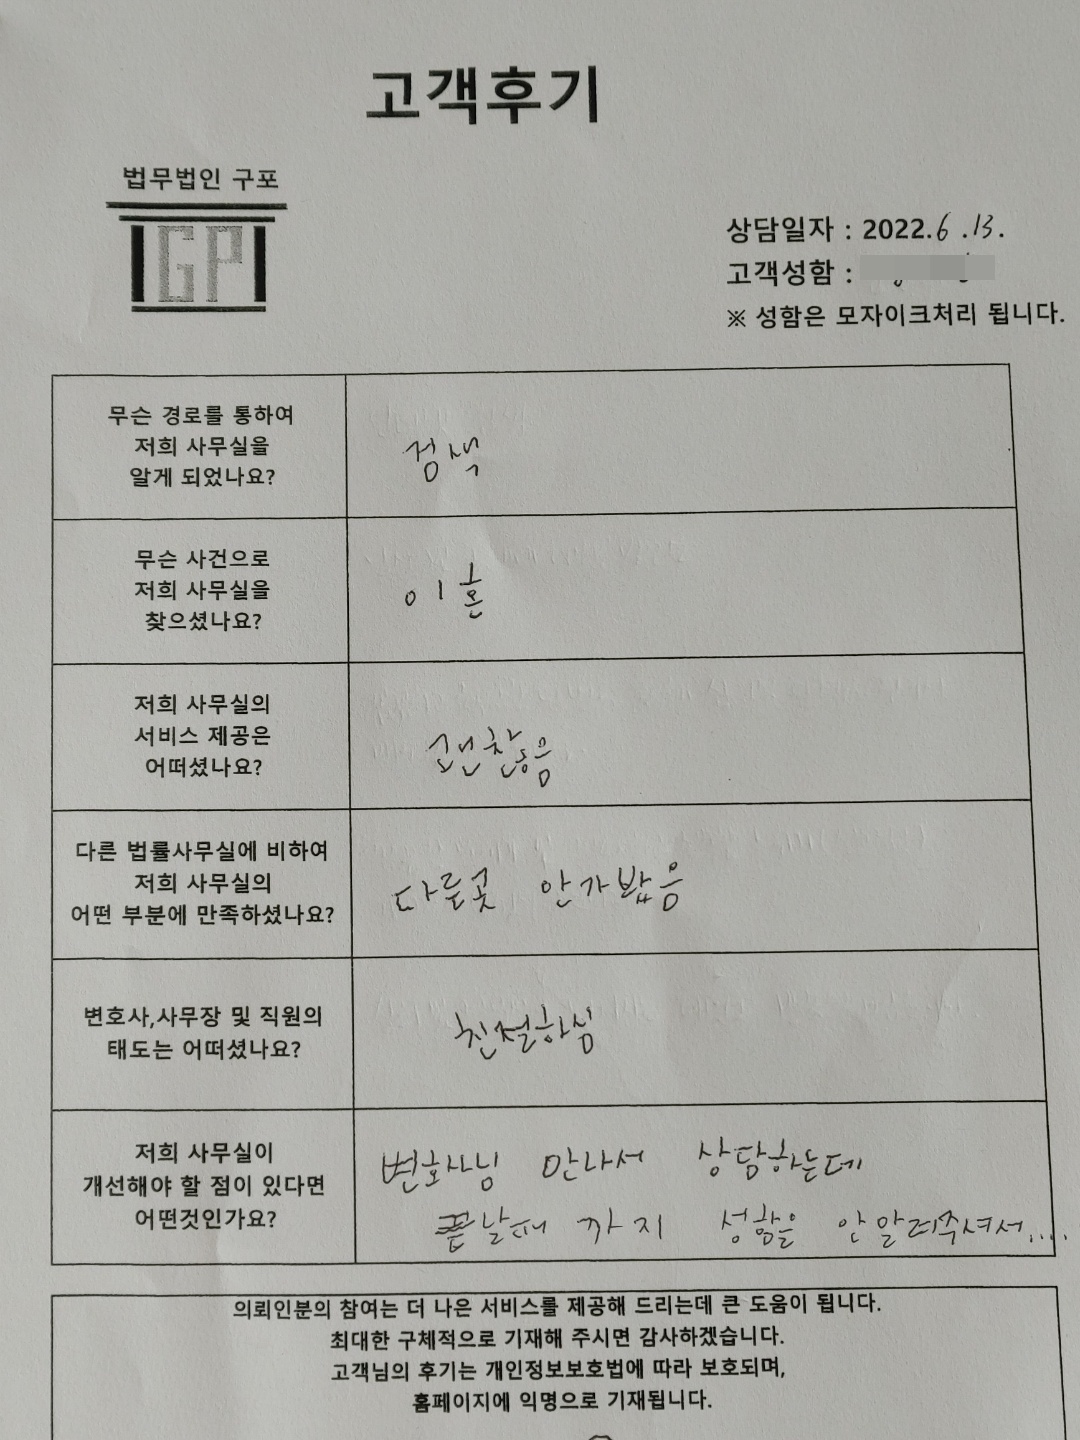 고객후기
법무법인 구포
GP
상담일자 : 2022.6.13.
고객성함 :
※ 성함은 모자이크처리 됩니다.
무슨 경로를 통하여
저희 사무실을
알게 되었나요?
검색
무슨 사건으로
저희 사무실을
찾으셨나요?
이혼
저희 사무실의
서비스 제공은
어떠셨나요?
괜찮음
다른 법률사무실에 비하여
저희 사무실의
어떤 부분에 만족하셨나요?
다른곳 안가봤음
변호사,사무장 및 직원의
태도는 어떠셨나요?
친절하심
저희 사무실이
개선해야 할 점이 있다면
어떤것인가요?
변호사님 만나서 상담하는데
끝날때 까지 성함을 안알려주셔서....
의뢰인분의 참여는 더 나은 서비스를 제공해 드리는데 큰 도움이 됩니다.
최대한 구체적으로 기재해 주시면 감사하겠습니다.
고객님의 후기는 개인정보보호법에 따라 보호되며,
홈페이지에 익명으로 기재됩니다.